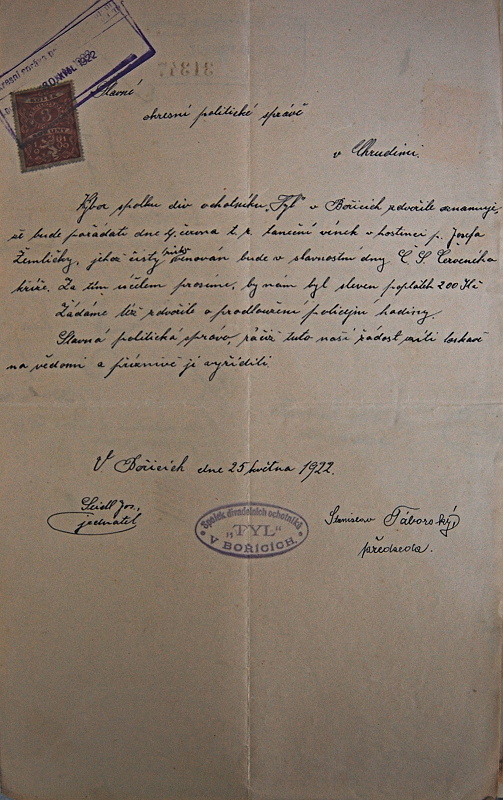 Slavné
okresní politické správě
v Chrudimi.
Výbor spolku div. ochotníků „Tyl“ v Bořicích zdvořile oznamuje,
že bude pořádati dne 4. června t. r. taneční věnek v hostinci p. Josefa
Žemličky, jehož čistý zisk věnován bude v slavnostní dny Č. S. Červeného
kříže. Za tím účelem prosíme, by nám byl sleven poplatek 200 Kč
Žádáme též zdvořile o prodloužení policejní hodiny.
Slavná politická správo, račiž tuto naši žádost vzíti laskavě
na vědomí a příznivě ji vyříditi.
V Bořicích dne 25 května 1922.
Seidl Jos.,
jednatel
Spolek divadelních ochotníků
„TYL“
V BOŘICÍCH.
Stanislav Táborský,
předseda.